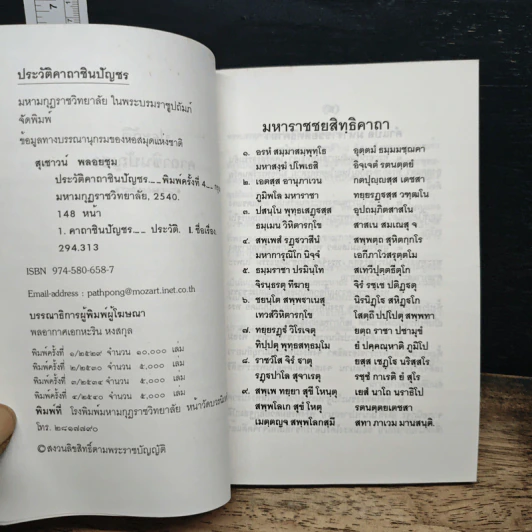 ประวัติคาถาชินบัญชร
มหามกุฏราชวิทยาลัย ในพระบรมราชูปถัมภ์
จัดพิมพ์
ข้อมูลทางบรรณานุกรมของหอสมุดแห่งชาติ
สุเชาวน์ พลอยชุม
ประวัติคาถาชินบัญชร.__พิมพ์ครั้งที่ 4.__
มหามกุฏราชวิทยาลัย, 2540.
148 หน้า
1. คาถาชินบัญชร__ ประวัติ. I. ชื่อเรื่อง
294.313
ISBN 974-580-658-7
Email-address : pathpong@mozart.inet.co.th
บรรณาธิการผู้พิมพ์ผู้โฆษณา
พลอากาศเอกหะริน หงสกุล
พิมพ์ครั้งที่ ๑/๒๕๒๙ จำนวน ๑๐,๐๐๐ เล่ม
พิมพ์ครั้งที่ ๒/๒๕๓๐ จำนวน ๕,๐๐๐ เล่ม
พิมพ์ครั้งที่ ๓/๒๕๓๔ จำนวน ๕,๐๐๐ เล่ม
พิมพ์ครั้งที่ ๔/๒๕๔๐ จำนวน ๕,๐๐๐ เล่ม
พิมพ์ที่ โรงพิมพ์มหามกุฏราชวิทยาลัย หน้าวัดบวรนิเวศ
โทร. ๒๘๑๗๗๙๐
© สงวนลิขสิทธิ์ตามพระราชบัญญัติ
มหาราชชยสิทฺธิคาถา
๑. อรหํ สมฺมาสมฺพุทฺโธ อุตฺตมํ ธมฺมมชฺฌคา
มหาสงฺฆํ ปโพเธสิ อิจฺเจตํ รตนตฺตยํ
๒. เอตสฺส อานุภาเวน กตปุญฺญสฺส เตชสา
ภูมิพโล มหาราชา ทยฺยรฏฺฐสฺส วฑฺฒโน
๓. ปสนฺโน พุทฺธเสฏฺฐสฺส อุปถมฺภิตสาสโน
ธมฺเมน วิหิตารกฺโข สาสเน สมเณสุ จ
๔. สพฺเพสํ รฏฺฐวาสีนํ สพฺพตฺถ สุหิตกฺกโร
มหาการุณิโก นิจฺจํ เอกีภาโวสรุตฺตโม
๕. ธมฺมราชา ปรมินฺโท สเทวีปุตฺตธีตุโก
จิรนฺธรตุ ทีฆายุ จิรํ รชฺเช ปติฏฺฐตุ
๖. ชยนฺโต สพฺพฐาเนสุ นิรนิฏฺโฐ สหิฏฺฐโก
เทวสํวิหิตารกฺโข โสตฺถึ ปปฺโปตุ สพฺพทา
๗. ทยฺยรฏฺฐํ วิโรเจตุ
ทิปฺปตุ พุทฺธสทฺธมฺโม
๘. ราชวํโส จิรํ ฐาตุ
รฏฺฐปาโล สุจาเรตุ รชฺชํ กาเรติ ยํ สุโร
๙. สพฺเพ ทยฺยา สุขี โหนฺตุ เยสํ นาโถ นราธิโป
สพฺพโลเก สุขํ โหตุ รตนตฺตยเตชสา
เมตฺตญฺจ สพฺพโลกสฺมึ สทา ภาเวม มานสนฺติ.